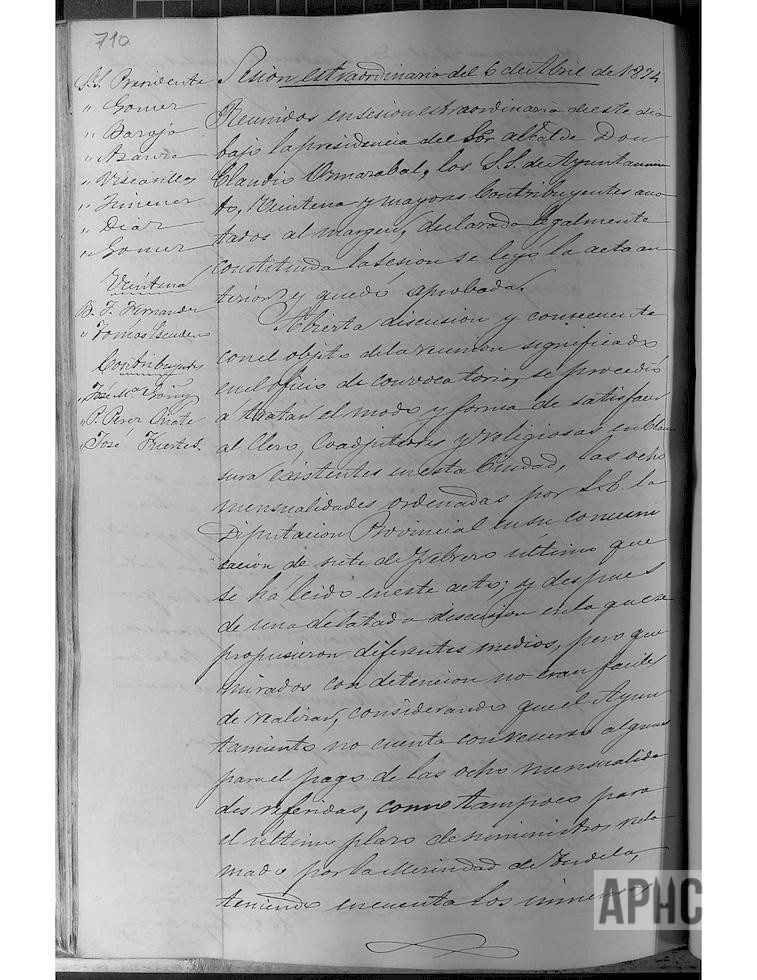 710
S.S. Presidente
" Gomez
" Baroja
" Azanza
" Viscarillas
" Jimenez
" Diaz
" Gomez
Veintena
B. F. Fernandez
" Tomas Escudero
Contribuyentes
" José Mª Goñi
" P. Perez Oñate
" José Fuertes.
Sesion estraordinaria del 6 de Abril de 1874
Reunidos en sesion estraordinaria de este dia
bajo la presidencia del Sor alcalde Don
Claudio Ormazabal, los S.S. de Ayuntamien
to, Veintena y mayores Contribuyentes ano
tados al margen, declarada legalmente
constituida la sesion se leyó la acta an
terior y quedó aprobada.
Abierta discusion y consecuente
con el objeto de la reunion significado
en el oficio de convocatoria, se procedió
a tratar el modo y forma de satisfacer
al Clero, Coadjutores y religiosas en clau
sura existentes en esta Ciudad, las ocho
mensualidades ordenadas por S.E. la
Diputacion Provincial en su comuni
cacion de siete de Febrero ultimo que
se ha leido en este acto; y despues
de una delatada discusion en la que se
propusieron diferentes medios, pero que
mirados con detencion no eran faciles
de realizar, considerando que el Ayun
tamiento no cuenta con recurso alguno
para el pago de las ocho mensualida
des referidas, como tampoco para
el ultimo plazo de suministros recla
mado por la Merindad de Tudela,
teniendo en cuenta los inmensos
APHC